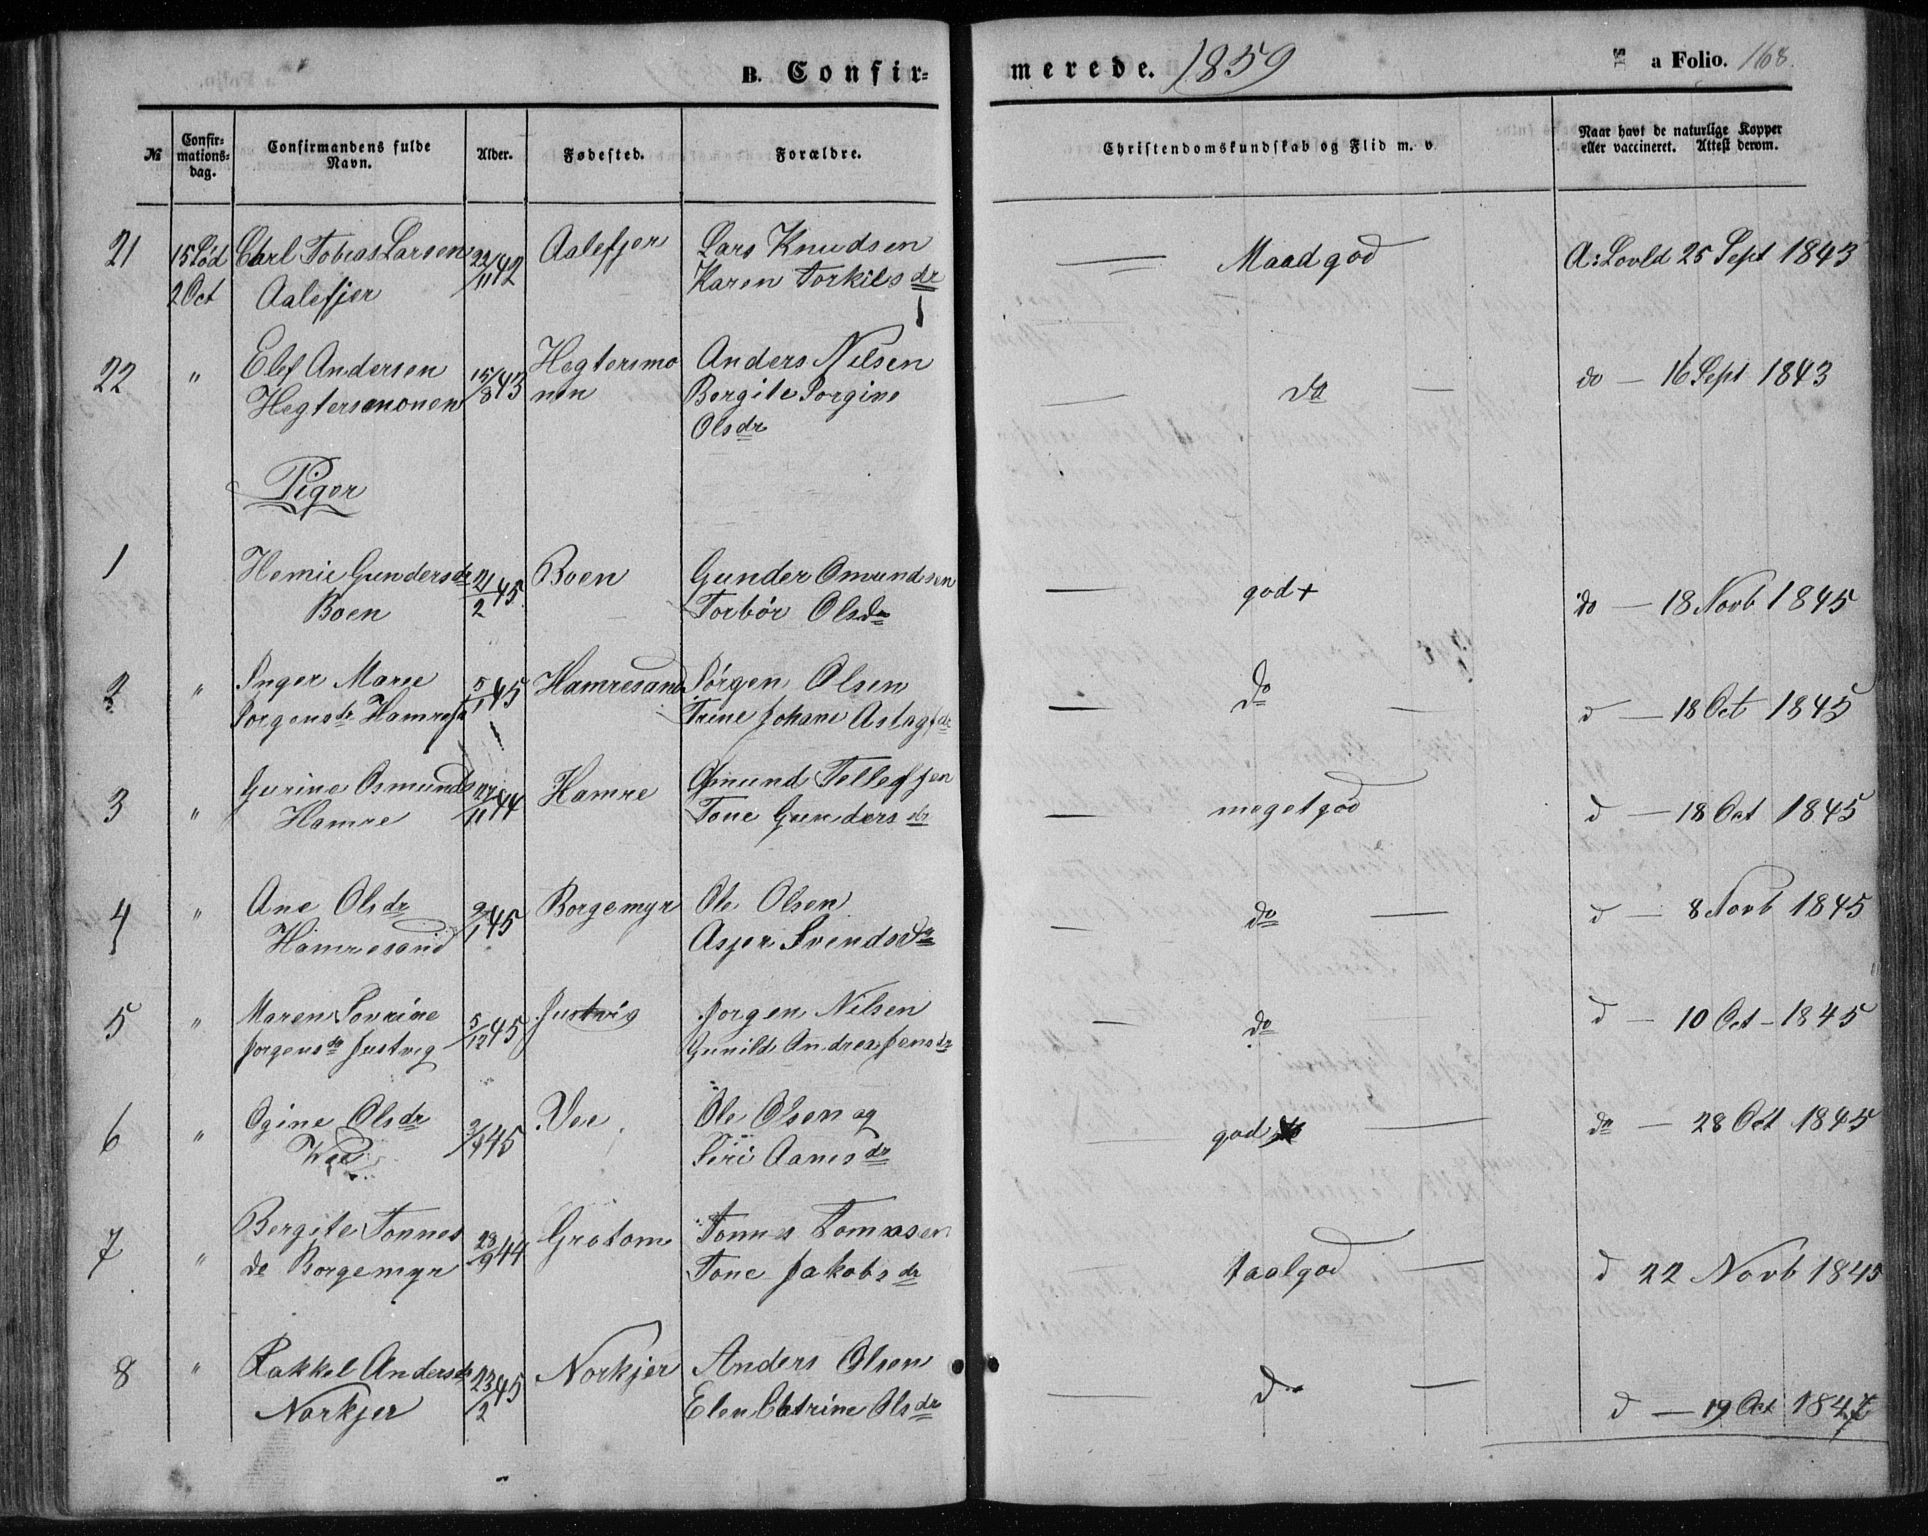 B. Confir-
merede. 1859
a Folio. 168.
№
Confir-
mations-
dag.
Confirmandens fulde
Navn.
Alder.
Fødested.
Forældre.
Christendomskundskab og Flid m. v.
Naar havt de naturlige Kopper
eller vaccineret. Attest derom.
21 15 Sød Carl Tobias Larsen 22/11 42 Aalefjer Lars Knudsen — Maadgod A: Lovld 25 Sept 1843
2 Oct Aalefjer Karen Torkilsdr
22 " Elef Andersen 15/8 43 Hegtersmo Anders Nilsen — do — do — 16 Sept 1843
Hegtersmonen nen Bergite Jorgine
Olsdr
Piger
1 Hemie Gundersdr 21/2 45 Boen Gunder Omundsen — god + do — 18 Novb 1845
Boen Torbör Olsdr
2 " Inger Marie 5/1 45 Hamresand Jørgen Olsen — do — d — 18 Oct 1845
Jorgensdr Hamresa Trine Johane
3 " Gurine Osmunds 11 44 Hamre Osmund Tellefsen — megetgod d — 18 Oct 1845
Hamre Tone Gundersdr
4 " Ane Olsdr 9/1 45 Borgemyr Ole Olsen — do — d — 8 Novb 1845
Hamresand Asjer Svendsdr
5 " Maren Sovrine 5/12 45 Justvig Jorgen Nilsen — do d — 10 Oct - 1845
Jorgensdr Justvig Gunild Andrea Jensdr
6 " Ogine Olsdr 45 Vee Ole Olsen og god — do — 28 Oct 1845
Wee Siri Aanesdr
7 " Bergite Tonnes 28/9 44 Grotom Tonnes Tomasen taalgod — d 22 Novb 1845
dr Borgemyr Tone Jakobsdr
8 " Rakkel Andersdr 23/2 45 Norkjer Anders Olsen — do — d — 19 Oct 1847
Norkjer Elen Catrine Olsdr